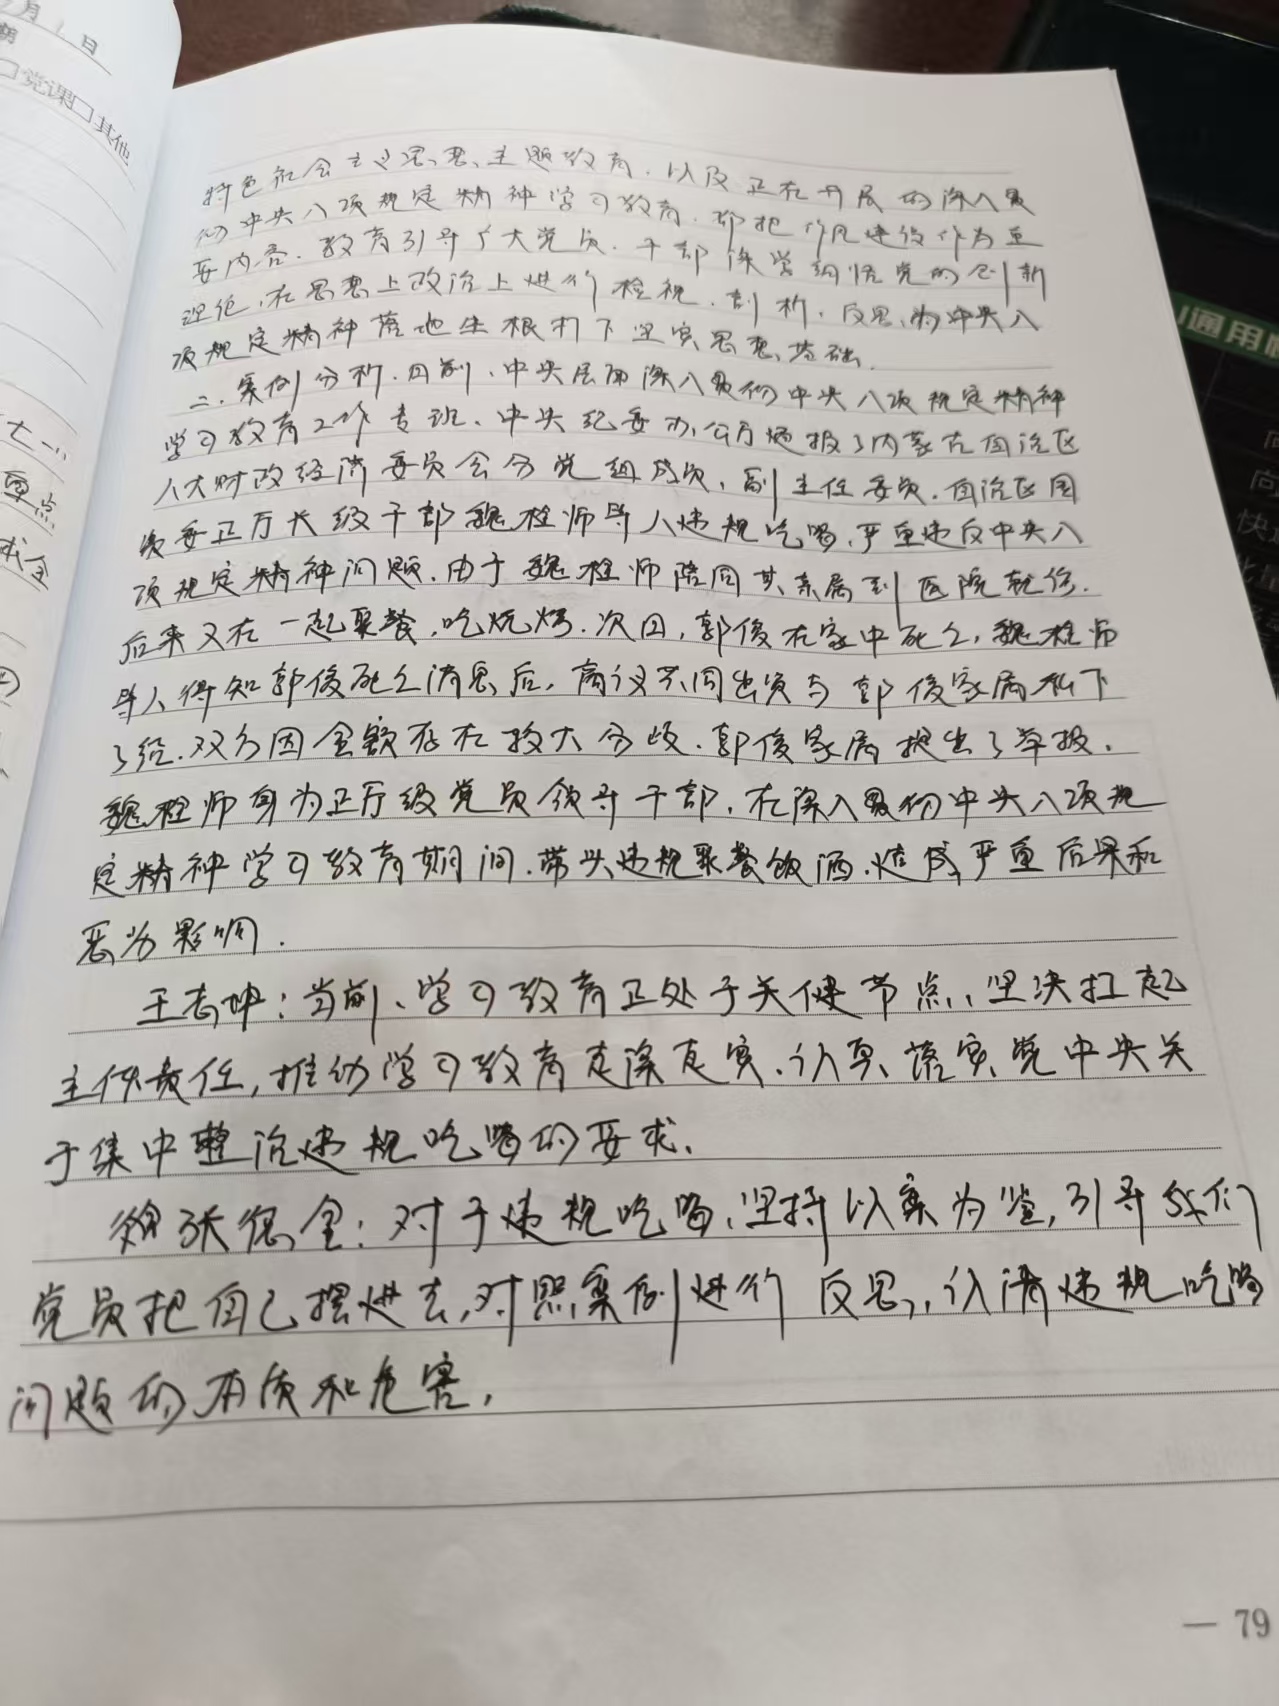 月1日
□党课□其他
特色社会主义思想主题教育,以及正在开展的深入贯
彻中央八项规定精神学习教育,都把作风建设作为重
要内容。教育引导广大党员、干部深学细悟党的创新
理论,在思想上政治上进行检视、剖析、反思,为中央八
项规定精神落地生根打下坚实思想基础。
二、案例分析。日前,中央层面深入贯彻中央八项规定精神
学习教育工作专班、中央纪委办公厅通报了内蒙古自治区
人大财政经济委员会分党组成员、副主任委员,自治区国
资委正厅长级干部魏栓师等人违规吃喝,严重违反中央八
项规定精神问题。由于魏栓师陪同其亲属到医院就诊.
后来又在一起聚餐,吃烧烤.次日,郭俊在家中死亡,魏栓师
等人得知郭俊死亡消息后,商议共同出资与郭俊家属私下
了结.双方因金额存在较大分歧.郭俊家属提出了举报.
魏栓师身为正厅级党员领导干部,在深入贯彻中央八项规
定精神学习教育期间.带头违规聚餐饮酒.造成严重后果和
恶劣影响.
王志坤:当前、学习教育正处于关健节点,坚决扛起
主体责任,推动学习教育走深走实.认真落实党中央关
于集中整治违规吃喝的要求.
张德金:对于违规吃喝,坚持以案为鉴,引导我们
党员把自己摆进去,对照案例进行反思,认清违规吃喝
问题的本质和危害,
— 79
通用
七一
重点